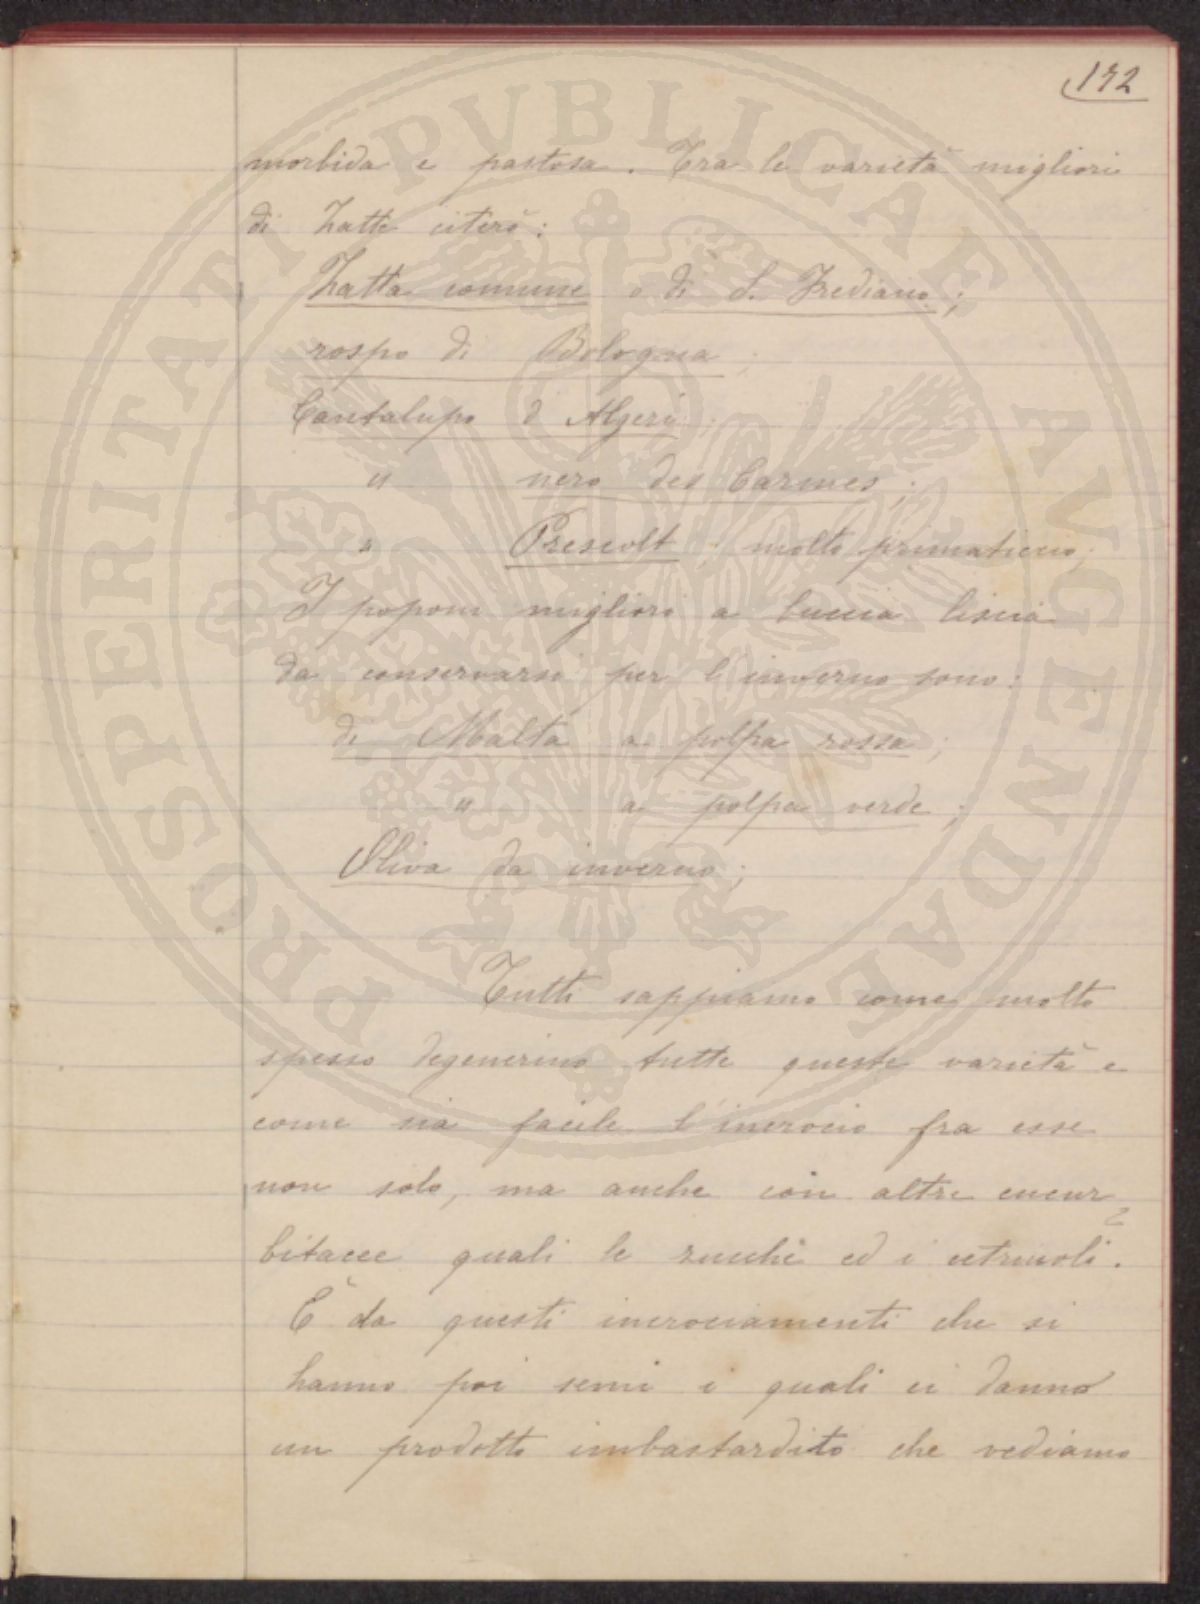 172
morbida e pastosa. Tra le varietà migliori
di Zatte citerò:
Zatta comune o di S. Frediano;
rospo di Bologna;
Cantalupo d'Algeri;
" nero des Carmes;
" Prescolt; molto primaticcio;
I poponi migliori a buccia liscia
da conservarsi per l'inverno sono:
di Malta a polpa rossa;
" a polpa verde;
Oliva da inverno;
Tutti sappiamo come molto
spesso degenerino tutte queste varietà e
come sia facile l'incrocio fra esse
non solo, ma anche con altre cucur
bitacee quali le zucche ed i cetriuoli.
È da questi incrociamenti che si
hanno poi semi i quali ci danno
un prodotto imbastardito che vediamo
PROSPERITATI PVBLICAE AVGENDAE